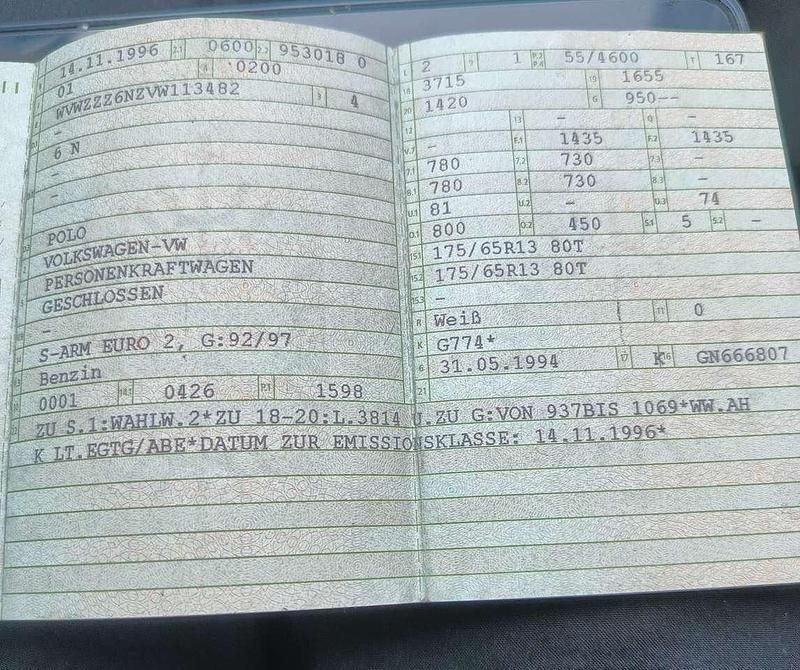 14.11.1996 2.1 0600 2.2 953018 0
01 4 0200
WVWZZZ6NZVW113482 3 4
-
6 N
-
-
POLO
VOLKSWAGEN-VW
PERSONENKRAFTWAGEN
GESCHLOSSEN
-
S-ARM EURO 2, G:92/97
Benzin
0001 0426 P.1 1598
L 2 9 1 P.2 P.4 55/4600 T 167
18 3715 19 1655
20 1420 G 950--
12 13 - Q -
V.7 - F.1 1435 F.2 1435
7.1 780 7.2 730 7.3 -
8.1 780 8.2 730 8.3 -
U.1 81 U.2 - U.3 74
O.1 800 O.2 450 S.1 5 S.2 -
15.1 175/65R13 80T
15.2 175/65R13 80T
15.3 -
R Weiß 11 0
K G774*
6 31.05.1994 17 K 16 GN666807
21
ZU S.1:WAHLW.2*ZU 18-20:L.3814 U.ZU G:VON 937BIS 1069*WW.AH
K LT.EGTG/ABE*DATUM ZUR EMISSIONSKLASSE: 14.11.1996*